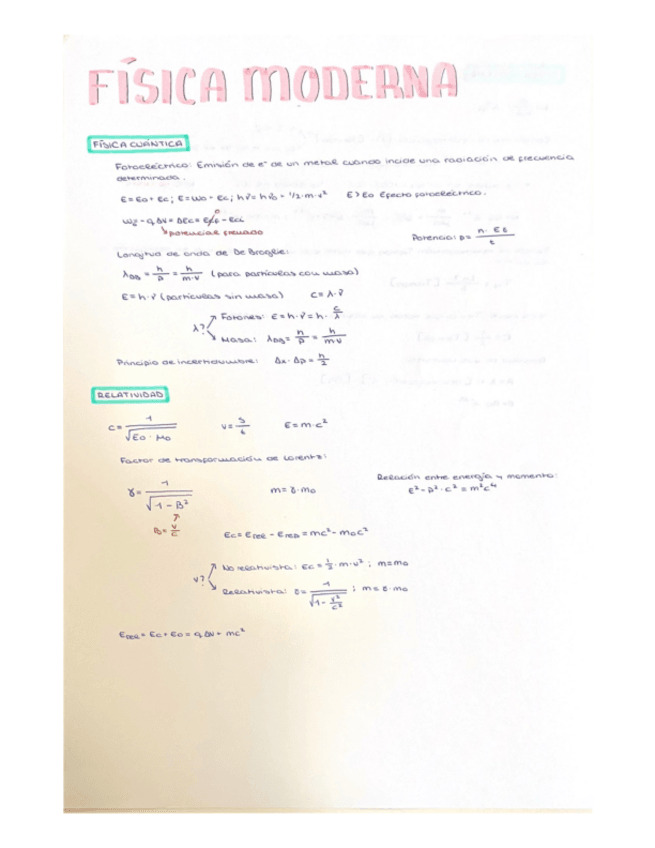 FÍSICA MODERNA
FÍSICA CUÁNTICA
Fotoeléctrico: Emisión de e⁻ de un metal cuando incide una radiación de frecuencia
determinada.
E = E₀ + Ec; E = W₀ - Ec; hν = hν₀ + 1/2·m·v² E > E₀ Efecto fotoeléctrico.
q·ΔV = ΔEc =
potencial frenado
Potencia: P = n·Et / t
Longitud de onda de De Broglie:
λDB = h/p = h/m·v (para partículas con masa)
E = h·ν (partículas sin masa) c = λ·ν
λ? Fotones: E = h·ν = h·c/λ
Masa: λDB = h/p = h/m·v
Principio de incertidumbre: Δx·Δp = h/2
RELATIVIDAD
c = 1/√ε₀·μ₀ v = s/t E = m·c²
Factor de transformación de Lorentz:
γ = 1/√1-β² m = γ·m₀
Relación entre energía y momento:
E² - p²·c² = m²c⁴
β = v/c
Ec = - = mc² - m₀c²
v? No relativista: Ec = 1/2·m·v²; m = m₀
Relativista: γ = 1/√1-v²/c²; m = γ·m₀
= Ec + E₀ = q·ΔV + mc²